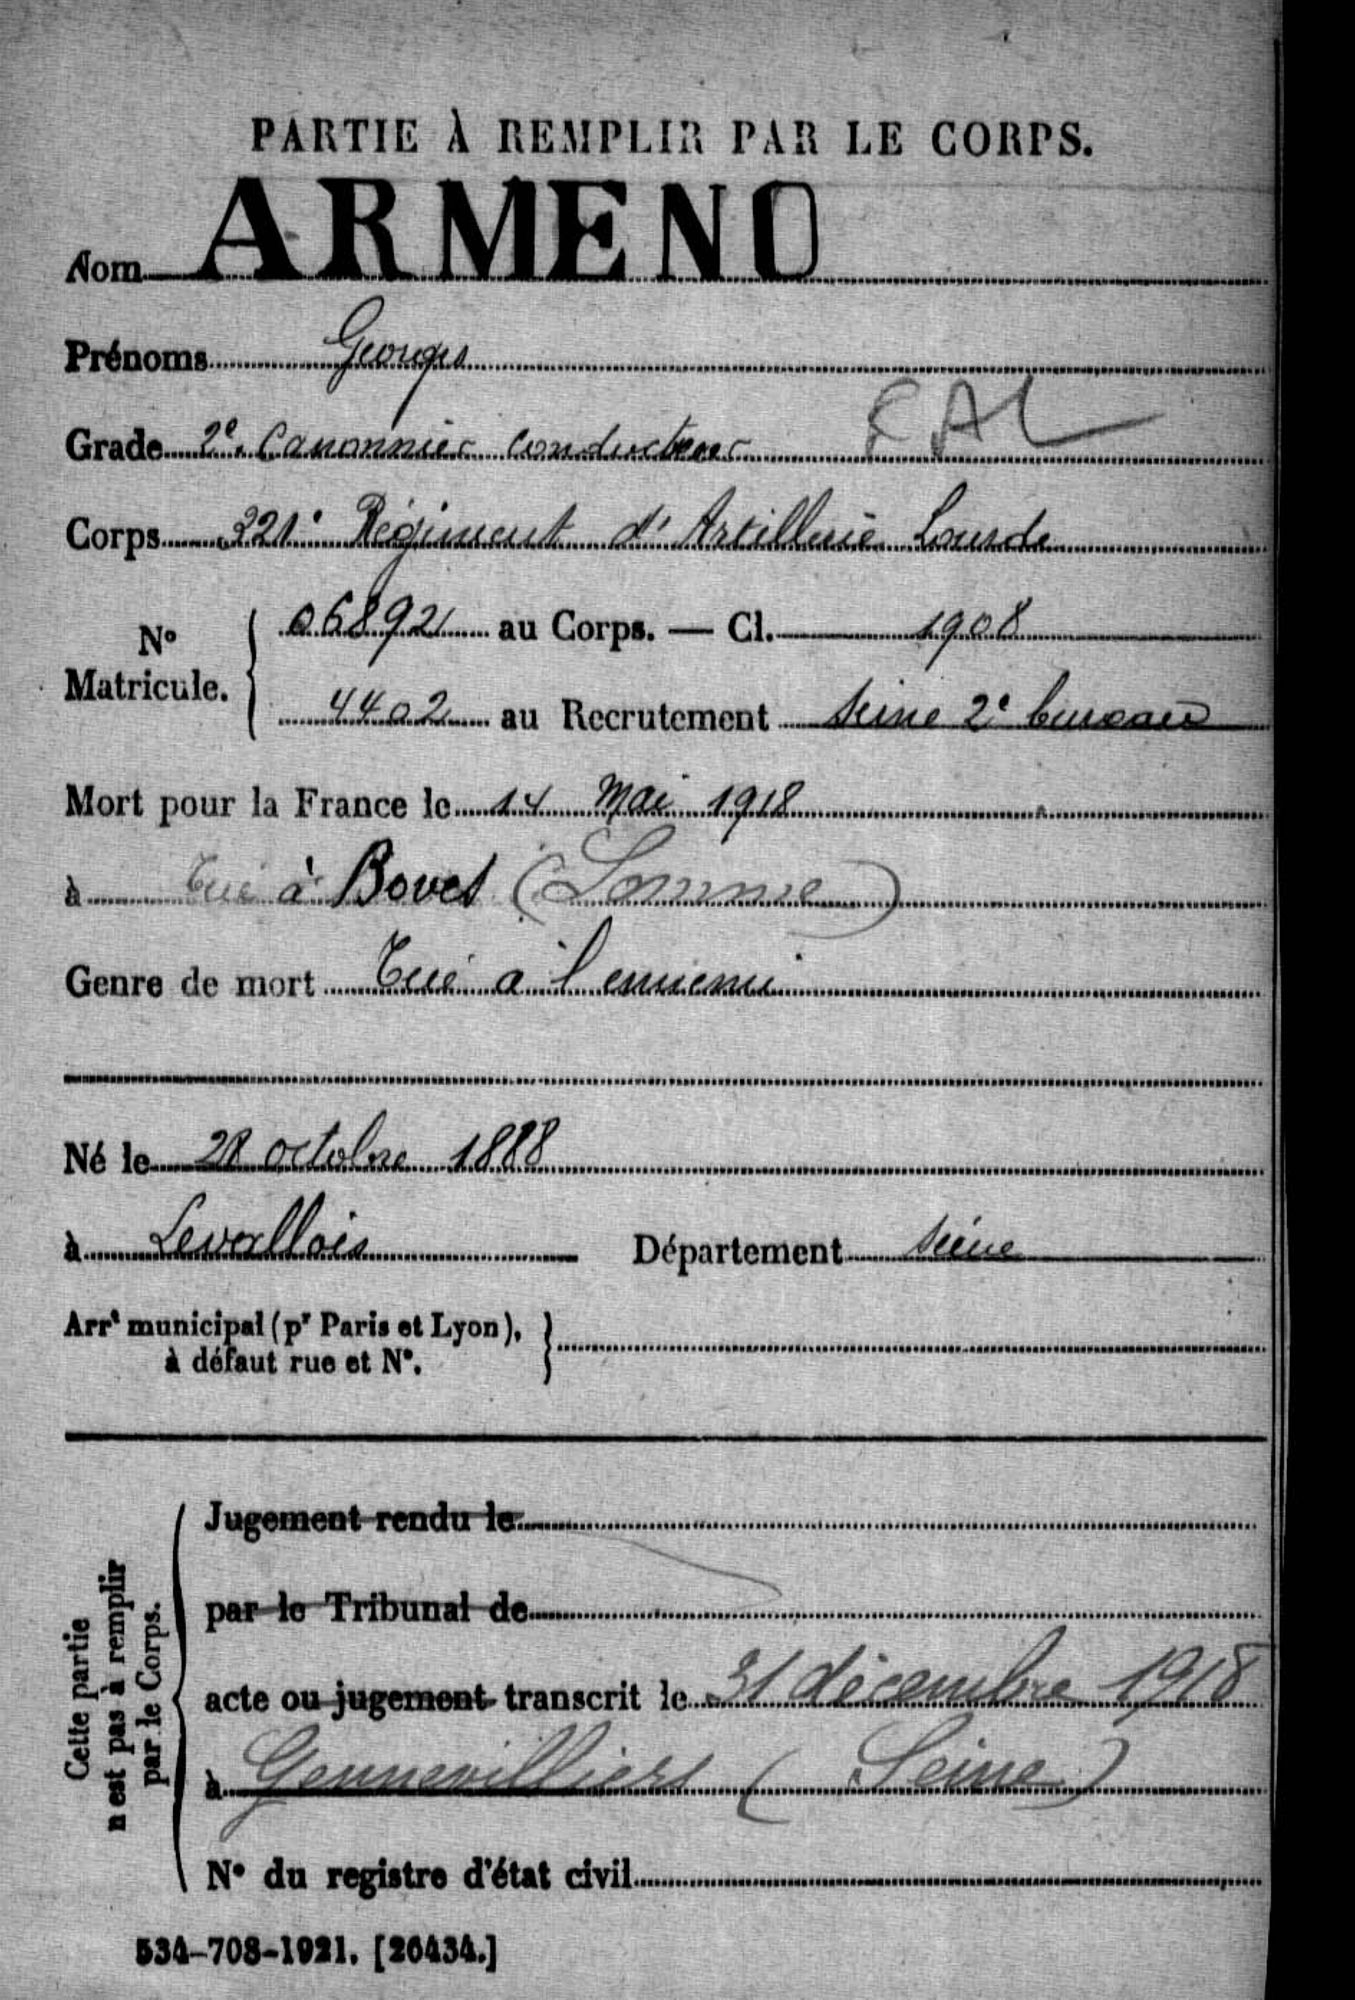 PARTIE À REMPLIR PAR LE CORPS.
Nom ARMENO
Prénoms Georges
Grade 2e Canonnier conducteur RAL
Corps 321e Régiment d'Artillerie Lourde
N° Matricule. { 06892 au Corps. — Cl. 1908
4402 au Recrutement Seine 2e bureau
Mort pour la France le 14 Mai 1918
à Tué à Boves (Somme)
Genre de mort Tué à l'ennemi
Né le 28 octobre 1888
à Levallois Département Seine
Arrt municipal (pr Paris et Lyon), à défaut rue et N°. }
Cette partie n'est pas à remplir par le Corps.
Jugement rendu le
par le Tribunal de
acte ou jugement transcrit le 31 décembre 1918
à Gennevilliers (Seine)
N° du registre d'état civil
534-708-1921. [26434.]